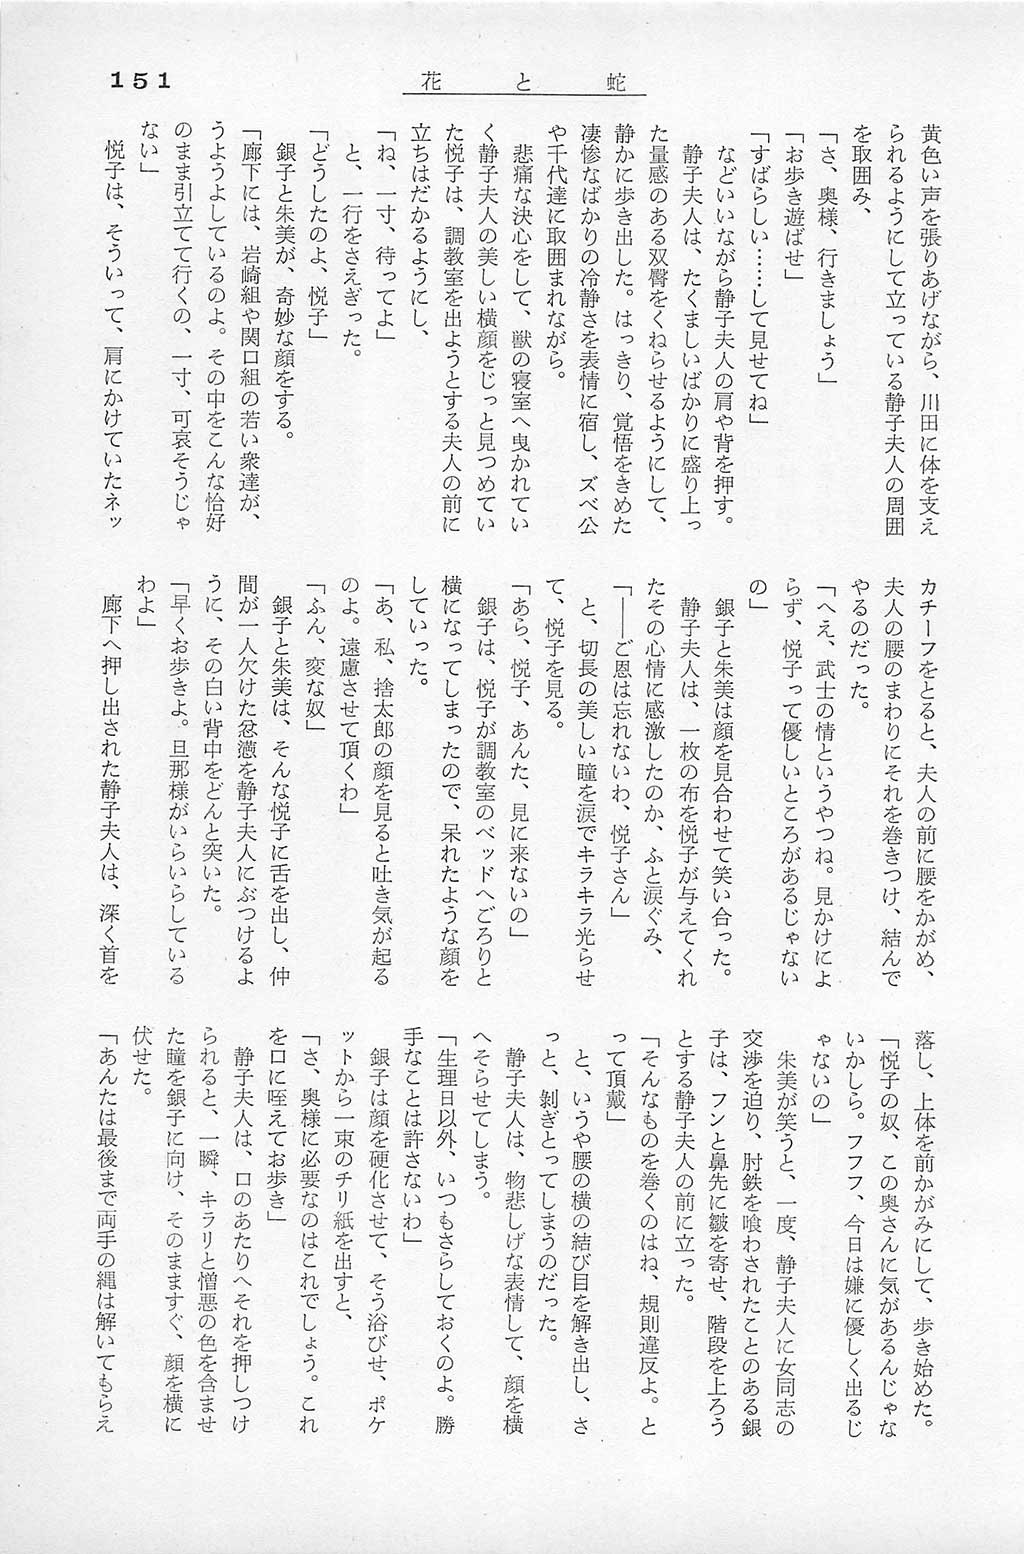 151
花と蛇
黄色い声を張りあげながら、川田に体を支え
られるようにして立っている静子夫人の周囲
を取囲み、
「さ、奥様、行きましょう」
「お歩き遊ばせ」
「すばらしい……して見せてね」
などいいながら静子夫人の肩や背を押す。
静子夫人は、たくましいばかりに盛り上っ
た量感のある双臀をくねらせるようにして、
静かに歩き出した。はっきり、覚悟をきめた
凄惨なばかりの冷静さを表情に宿し、ズベ公
や千代達に取囲まれながら。
悲痛な決心をして、獣の寝室へ曳かれてい
く静子夫人の美しい横顔をじっと見つめてい
た悦子は、調教室を出ようとする夫人の前に
立ちはだかるようにし、
「ね、一寸、待ってよ」
と、一行をさえぎった。
「どうしたのよ、悦子」
銀子と朱美が、奇妙な顔をする。
「廊下には、岩崎組や関口組の若い衆達が、
うようよしているのよ。その中をこんな恰好
のまま引立てて行くの、一寸、可哀そうじゃ
ない」
悦子は、そういって、肩にかけていたネッ
カチーフをとると、夫人の前に腰をかがめ、
夫人の腰のまわりにそれを巻きつけ、結んで
やるのだった。
「へえ、武士の情というやつね。見かけによ
らず、悦子って優しいところがあるじゃない
の」
銀子と朱美は顔を見合わせて笑い合った。
静子夫人は、一枚の布を悦子が与えてくれ
たその心情に感激したのか、ふと涙ぐみ、
「――ご恩は忘れないわ、悦子さん」
と、切長の美しい瞳を涙でキラキラ光らせ
て、悦子を見る。
「あら、悦子、あんた、見に来ないの」
銀子は、悦子が調教室のベッドへごろりと
横になってしまったので、呆れたような顔を
していった。
「あ、私、捨太郎の顔を見ると吐き気が起る
のよ。遠慮させて頂くわ」
「ふん、変な奴」
銀子と朱美は、そんな悦子に舌を出し、仲
間が一人欠けた忿懣を静子夫人にぶつけるよ
うに、その白い背中をどんと突いた。
「早くお歩きよ。旦那様がいらいらしている
わよ」
廊下へ押し出された静子夫人は、深く首を
落し、上体を前かがみにして、歩き始めた。
「悦子の奴、この奥さんに気があるんじゃな
いかしら。フフフ、今日は嫌に優しく出るじ
ゃないの」
朱美が笑うと、一度、静子夫人に女同志の
交渉を迫り、肘鉄を喰わされたことのある銀
子は、フンと鼻先に皺を寄せ、階段を上ろう
とする静子夫人の前に立った。
「そんなものを巻くのはね、規則違反よ。と
って頂戴」
と、いうや腰の横の結び目を解き出し、さ
っと、剝ぎとってしまうのだった。
静子夫人は、物悲しげな表情して、顔を横
へそらせてしまう。
「生理日以外、いつもさらしておくのよ。勝
手なことは許さないわ」
銀子は顔を硬化させて、そう浴びせ、ポケ
ットから一束のチリ紙を出すと、
「さ、奥様に必要なのはこれでしょう。これ
を口に咥えてお歩き」
静子夫人は、口のあたりへそれを押しつけ
られると、一瞬、キラリと憎悪の色を含ませ
た瞳を銀子に向け、そのまますぐ、顔を横に
伏せた。
「あんたは最後まで両手の縄は解いてもらえ